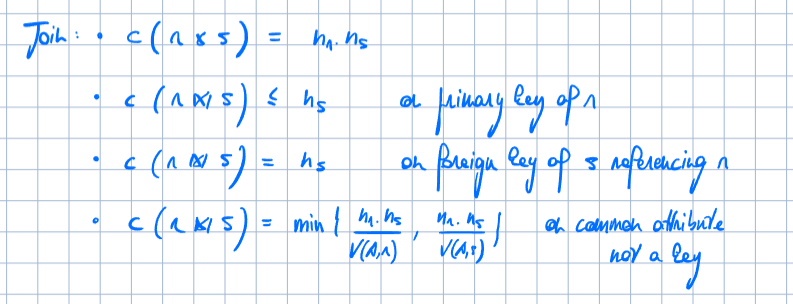 Join: • c(r × s) = nr · ns
• c(r ⋈ s) ≤ ns on primary key of r
• c(r ⋈ s) = ns on foreign key of s referencing r
• c(r ⋈ s) = min { nr · ns / V(A,r) , nr · ns / V(A,s) } on common attribute
not a key